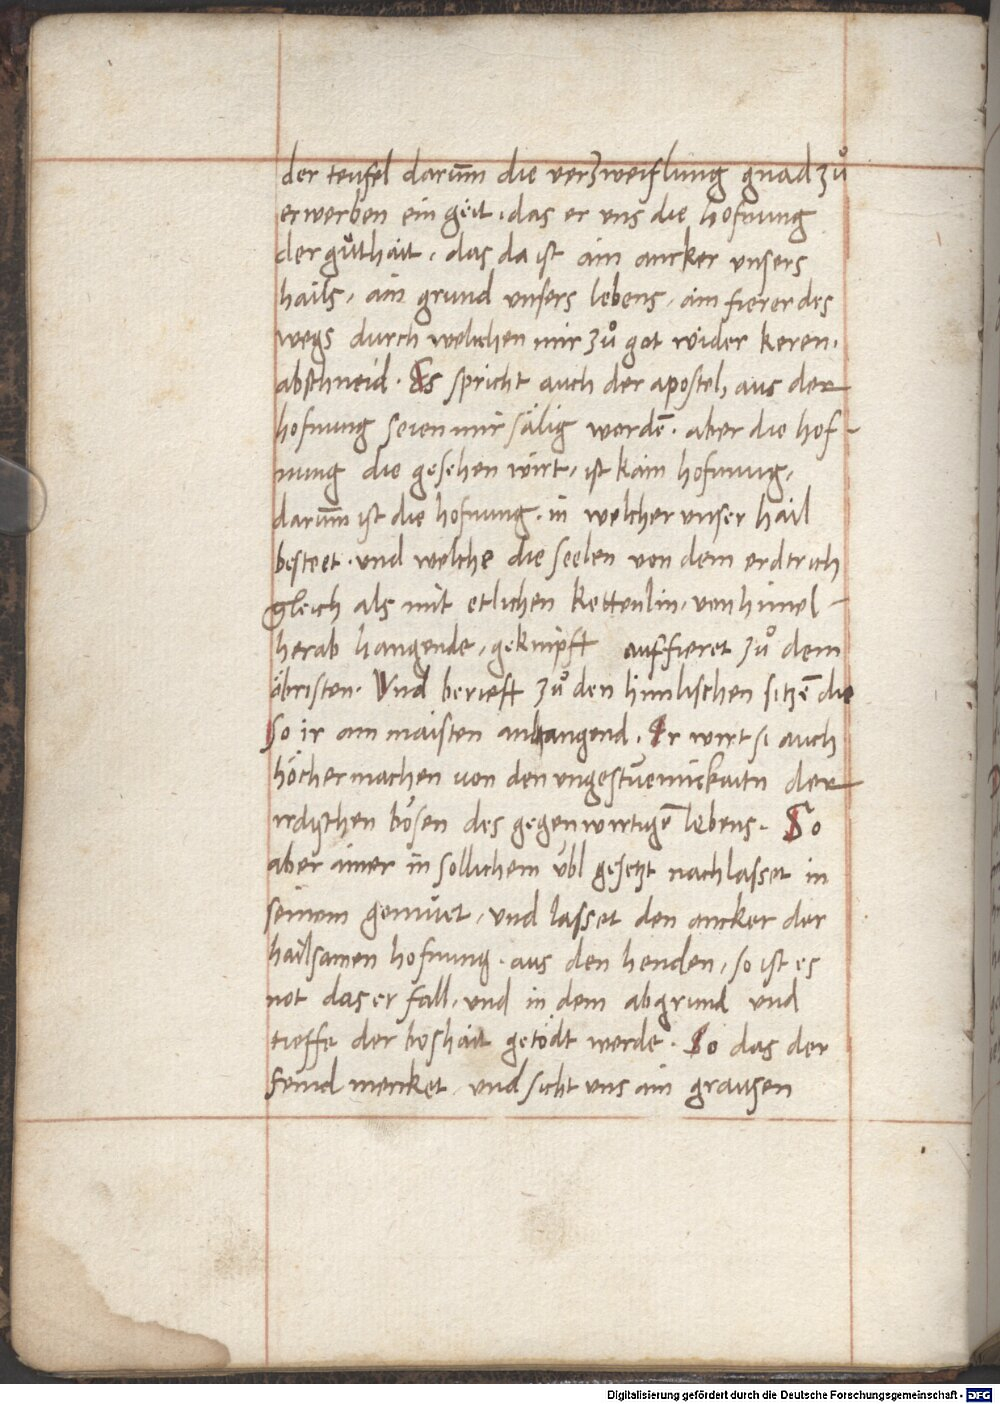 der teufel darum̄ die verzweiflung gnad zů
erwerben ein geit, das er vns die hofnung
der gůthait, das da ist ain ancker vnsers
hails, ain grund vnsers lebens, ain fierer des
wegs durch welichen mir zů got wider keren,
abschneid. Es spricht auch der apostel, aus der
hofnung seien mir sälig wordē. aber die hof-
nung die gesehen wirt, ist kain hofnung,
darum̄ ist die hofnung, in welcher vnser hail
besteet, vnd welche die seelen von dem erdtrich
gleich als mit etlichen kettenlin, von himel-
herab hangende, geknipft auffieret zů dem
öbristen. Vnd berieft zů den himlischen sitzē die
so ir am maisten anhangend. Er wirt si auch
höcher machen von den vngestüemickaitn der
irdischen bösen des gegenwirtigē lebens. So
aber ainer in sollichem übl gesetzt nachlasset in
seinem gemüet, vnd lasset den ancker der
hailsamen hofnung. aus den henden, so ist es
not das er fall, vnd in dem abgrund vnd
tieffe der boshait getödt werde. So das der
feind mercket, vnd sicht vns ain grausen
Digitalisierung gefördert durch die Deutsche Forschungsgemeinschaft - DFG